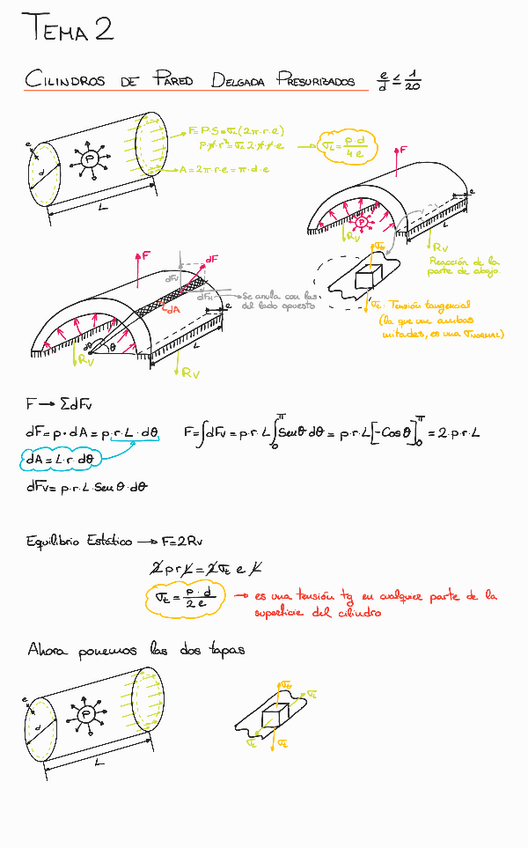 TEMA 2
CILINDROS DE PARED DELGADA PRESURIZADOS e/d ≤ 1/20
e
d
P
L
F=P·S=σL(2π·r·e)
p·π·r²=σL 2·π·r·e → σL = p·d/4e
A=2π·r·e=π·d·e
F
e
P
RV
RV
L
Reacción de la
parte de abajo.
σt
σt: Tensión tangencial
(la que une ambas
mitades, es una σNORMAL)
F
dFV
dF
dFH → Se anula con las
del lado opuesto
dA
dθ
θ
e
L
RV
RV
F → ΣdFV
dF = p·dA = p·r·L·dθ
F=∫dFV = p·r·L ∫₀^π Senθ·dθ = p·r·L[-Cosθ]₀^π = 2·p·r·L
dA = L·r·dθ
dFV = p·r·L·Senθ·dθ
Equilibrio Estático → F=2RV
2 p r L = 2 σt e L
σt = p·d/2e → es una tensión tg en cualquier parte de la
superficie del cilindro
Ahora ponemos las dos tapas
e
d
P
L
σt
σL
σL
σt